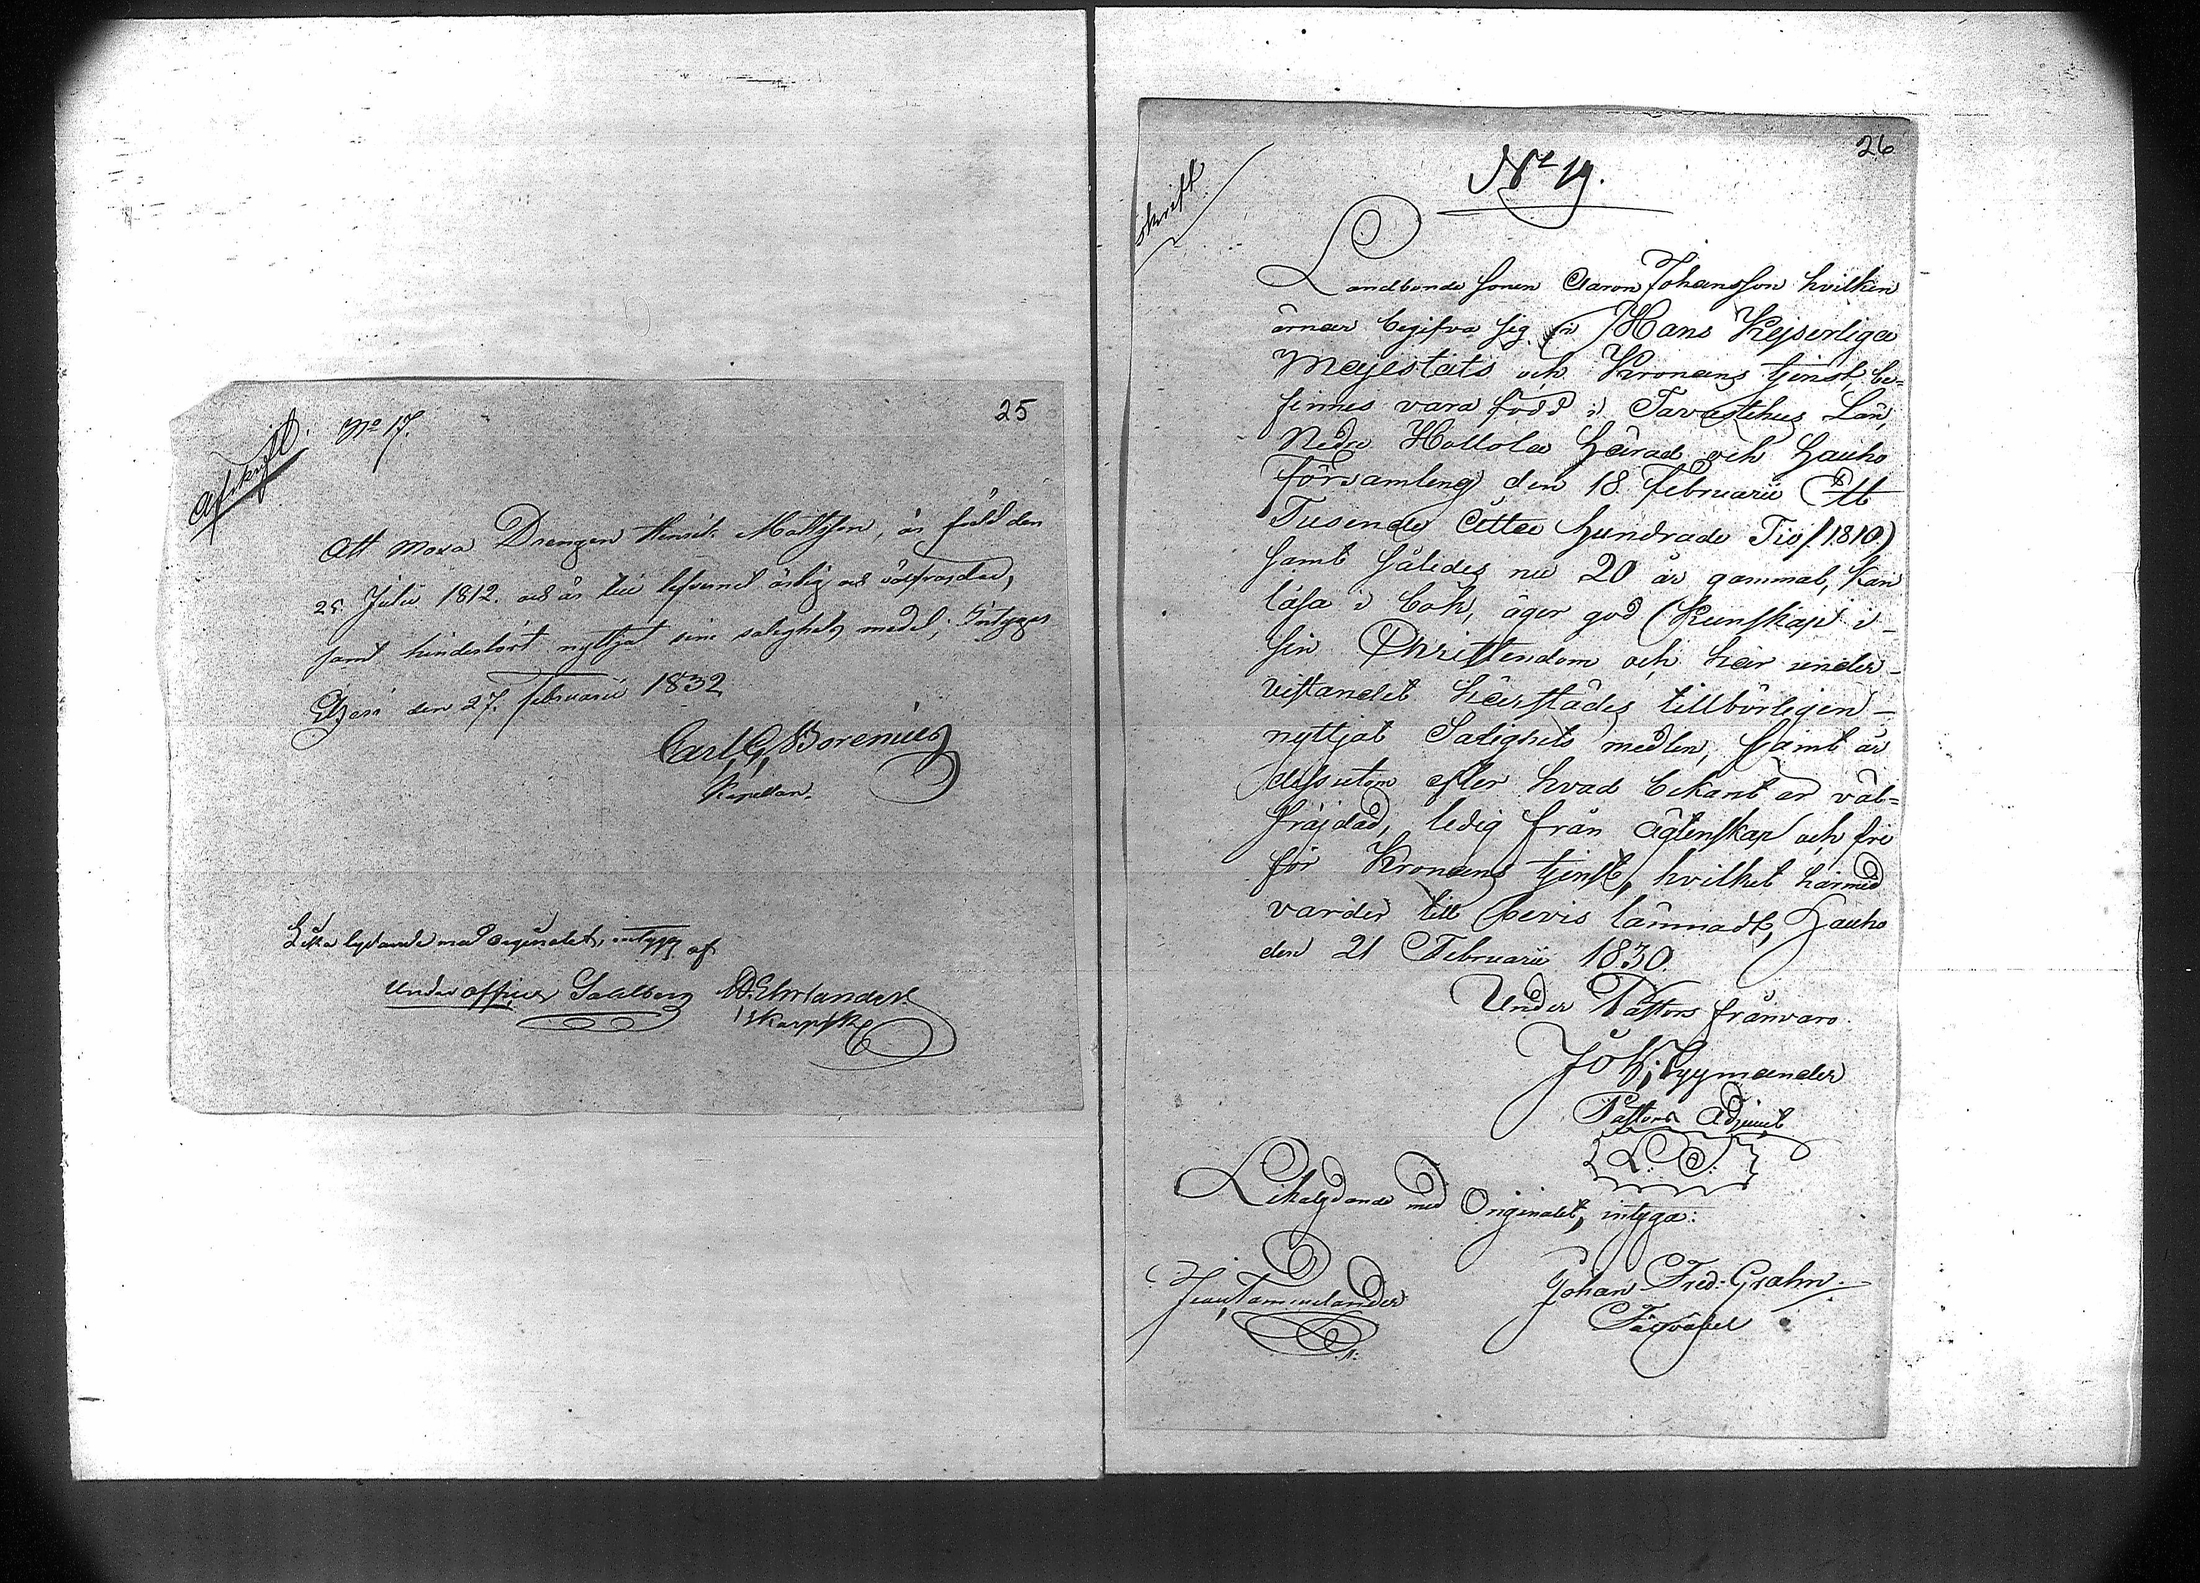 25
Afskrift.
No 17.
Att Moxa Drengen Henrik Mattsson, är född den
25 Julii 1812. och är till lefvernet ärlig och välfrejdad,
samt hindertört nyttjat sine salighets medel; Intygas
den 27. februarii 1832
Carl G. Borenius
Kapellan.
Lika lydande med originalet, intyga af
Under officer Sahlberg
26
skrift
No 19.
Landbonde Sonen Aaron Johansson hvilken
ärnar begifva sig i Hans Kejserliga
Majestäts och Kronans tjenst, be=
finnes vara född i Tavastehus Län,
Nedre Hollola Härad och Hauho
Församling den 18 Februarii Ett
Tusende Åtta hundrade Tio (1810)
samt således nu 20 år gammal, kan
läsa i bok, äger god Kunskap i
sin Christendom och har under
vistandet härstädes tillbörligen
nyttjat Salighets medlen, samt är
dessutom efter hvad bekant är väl=
fräjdad, ledig från Ägtenskap och fri
för Kronans tjenst, hvilket härmed
varder till bevis lämnadt, Hauho
den 21 Februarii 1830.
Under Pastors frånvaro
Joh. Tyymander
Pastors Adjunct
L. S.
Likalydande med Originalet, intyga:
Johan Fred: Grahn.